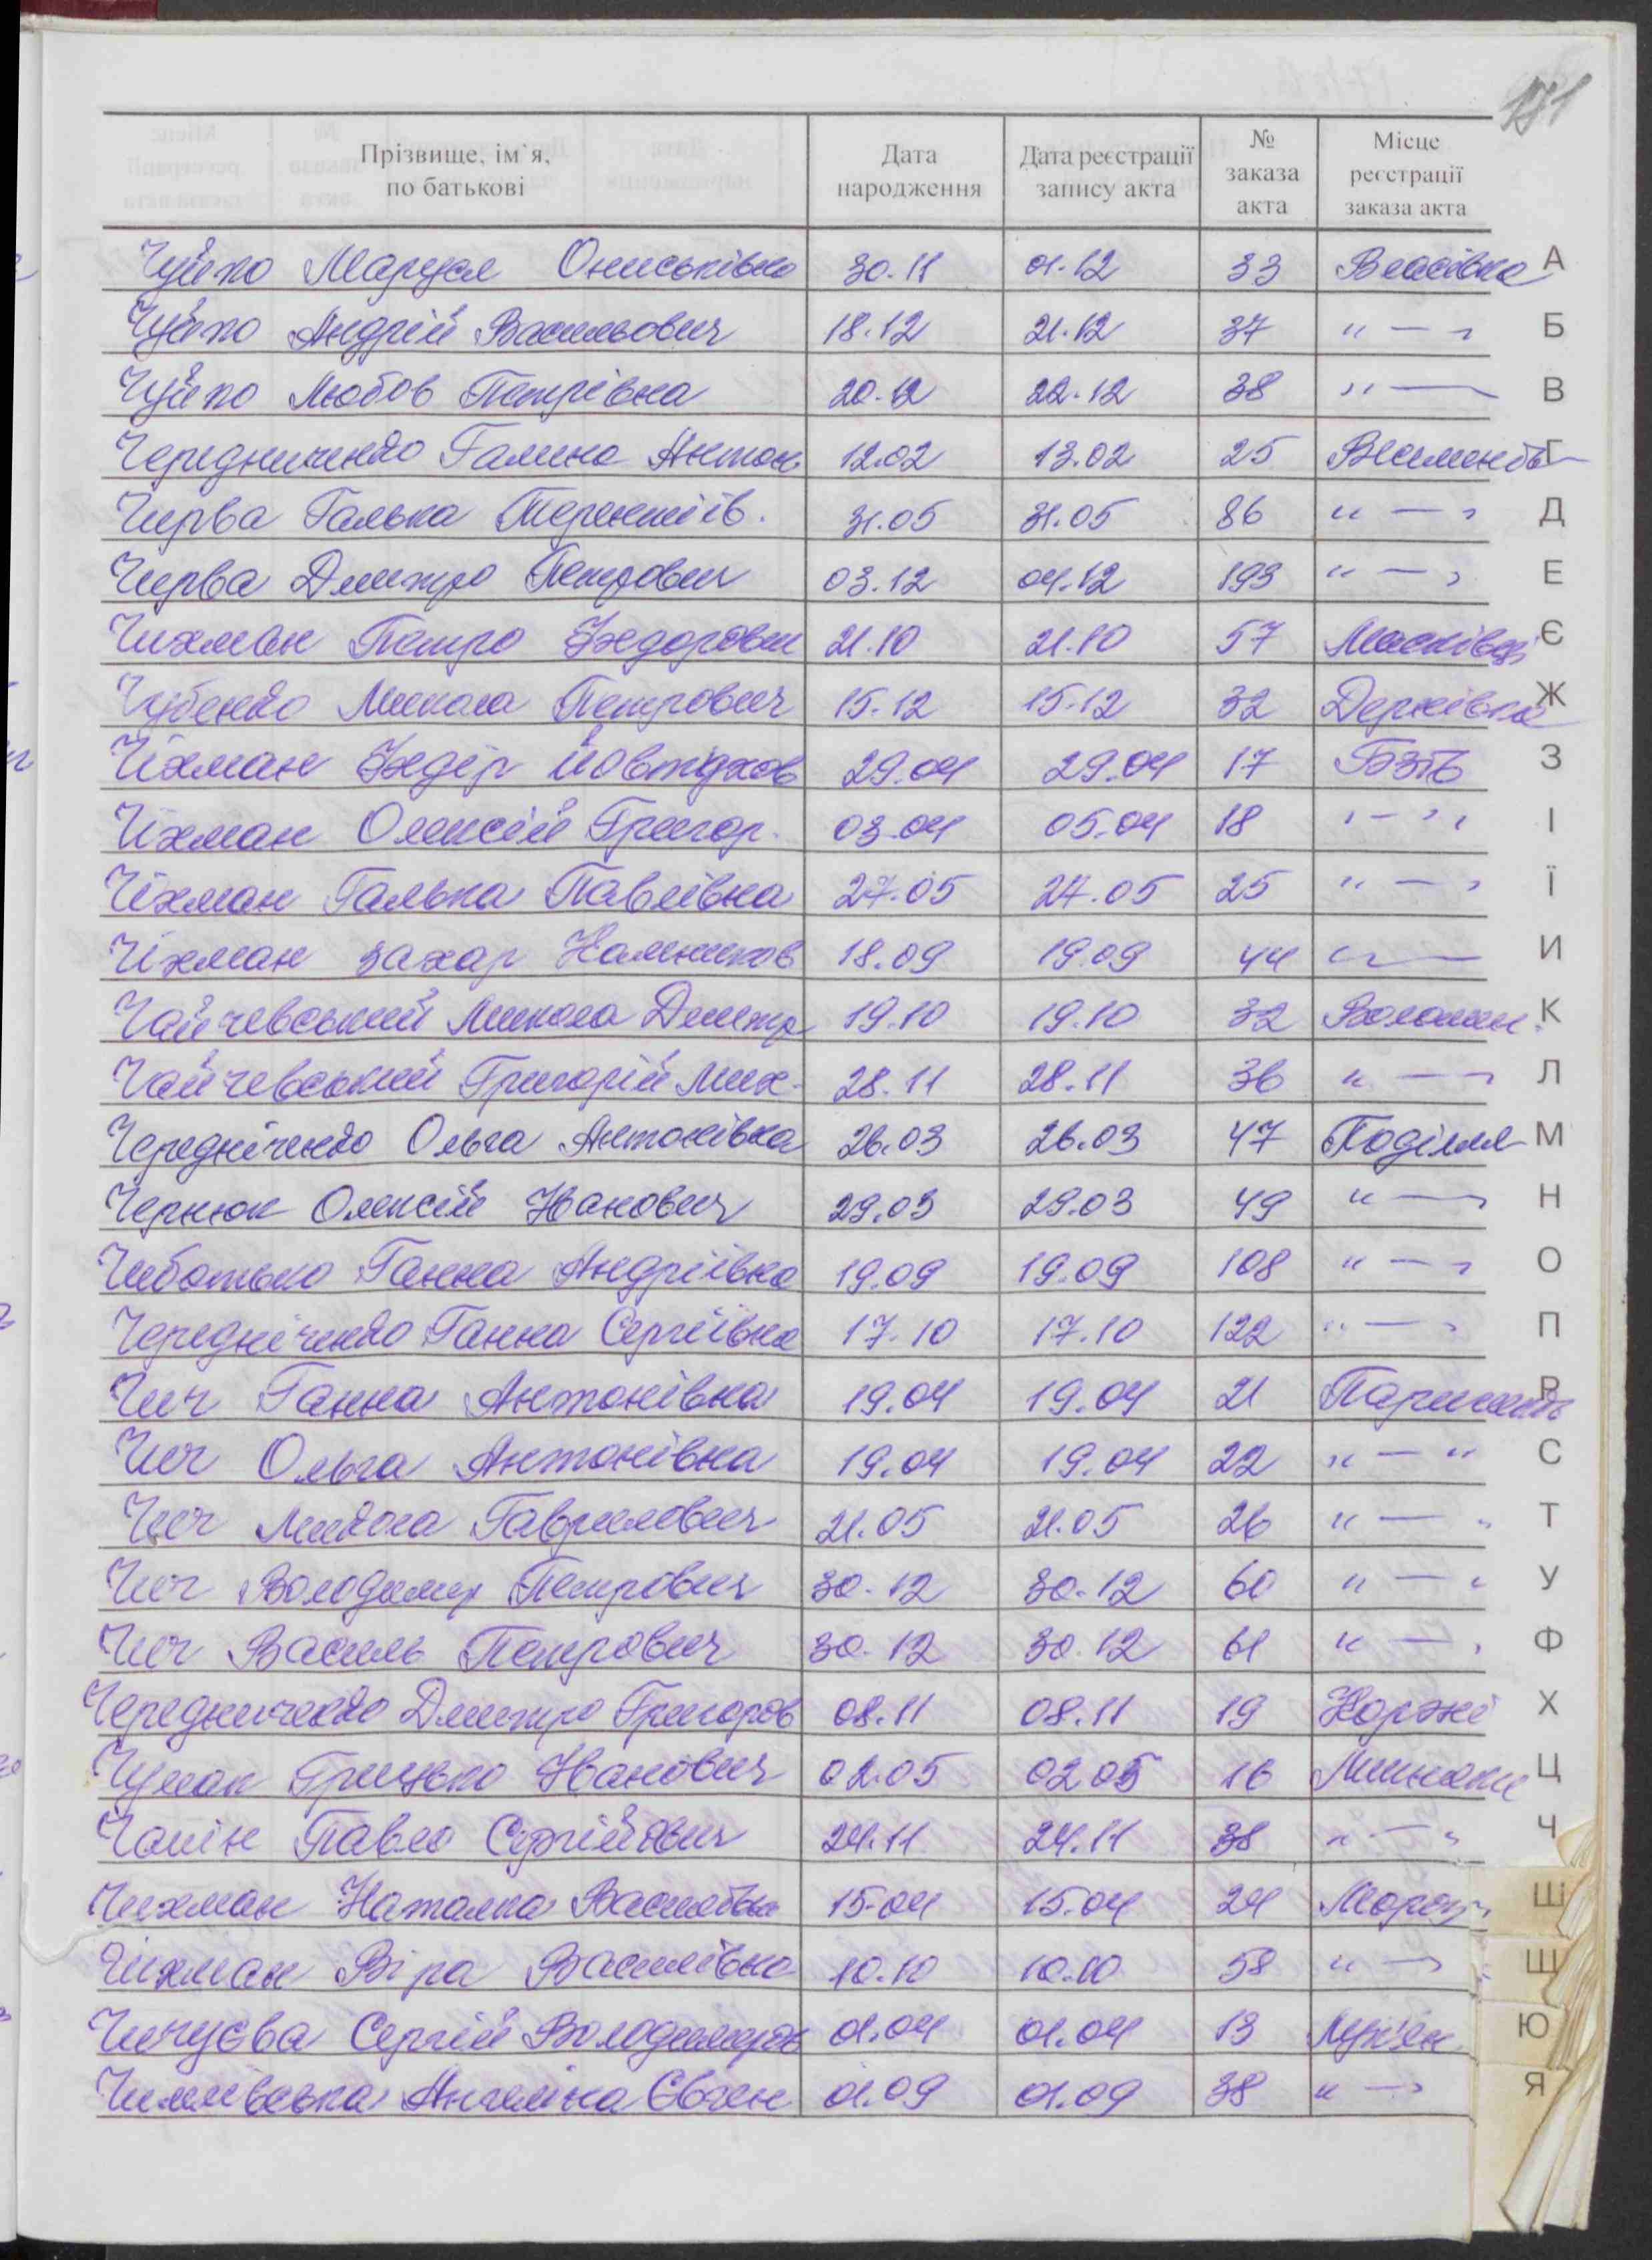 171
Прізвище, ім'я, по батькові Дата народження Дата реєстрації запису акта № заказа акта Місце реєстрації заказа акта
Чуйко Маруся Ониськівна 30.11 01.12 33 Власівка А
Чуйко Андрій Васильович 18.12 21.12 37 " — " Б
Чуйко Любов Петрівна 20.12 22.12 38 " — В
Чередниченко Галина Антон. 12.02 13.02 25 Г
Чирва Галька Терентіїв. 31.05 31.05 86 " — " Д
Чирва Дмитро Петрович 03.12 04.12 193 " — " Е
Чихман Петро Федорович 21.10 21.10 57 Москівці Є
Чубенко Микола Петрович 15.12 15.12 32 Дерківка Ж
Чіхман Федір Йовтухов 29.04 29.04 17 З
Чіхман Олексій Григор. 03.04 05.04 18 " — " І
Чіхман Галька Павлівна 27.05 27.05 25 " — " Ї
Чіхман Захар 18.09 19.09 44 " — И
Чайчевський Микола Дмитр 19.10 19.10 32 К
Чайчевський Григорій Мих. 28.11 28.11 36 " — " Л
Чередніченко Ольга Антонівна 26.03 26.03 47 Поділля М
Чернюк Олексій Іванович 29.03 29.03 49 " — " Н
Чеботько Ганна Андріївна 19.09 19.09 108 " — " О
Чередніченко Ганна Сергіївна 17.10 17.10 122 " — " П
Чич Ганна Антонівна 19.04 19.04 21 Р
Чич Ольга Антонівна 19.04 19.04 22 " — " С
Чич Микола Гаврилович 21.05 21.05 26 " — " Т
Чич Володимир Петрович 30.12 30.12 60 " — " У
Чич Василь Петрович 30.12 30.12 61 " — " Ф
Чередниченко Дмитро Григоров 08.11 08.11 19 Коржі Х
Чумак Грицько Іванович 02.05 02.05 16 Ц
Чапін Павло Сергійович 24.11 24.11 38 " — " Ч
Чихман Наталка Василівна 15.04 15.04 24 Ш
Чихман Віра Василівна 10.10 10.10 58 " — " Щ
Чичуєва Сергій Володимиров 01.04 01.04 13 Лук'ян Ю
Ангеліна Євген 01.09 01.09 38 " — " Я